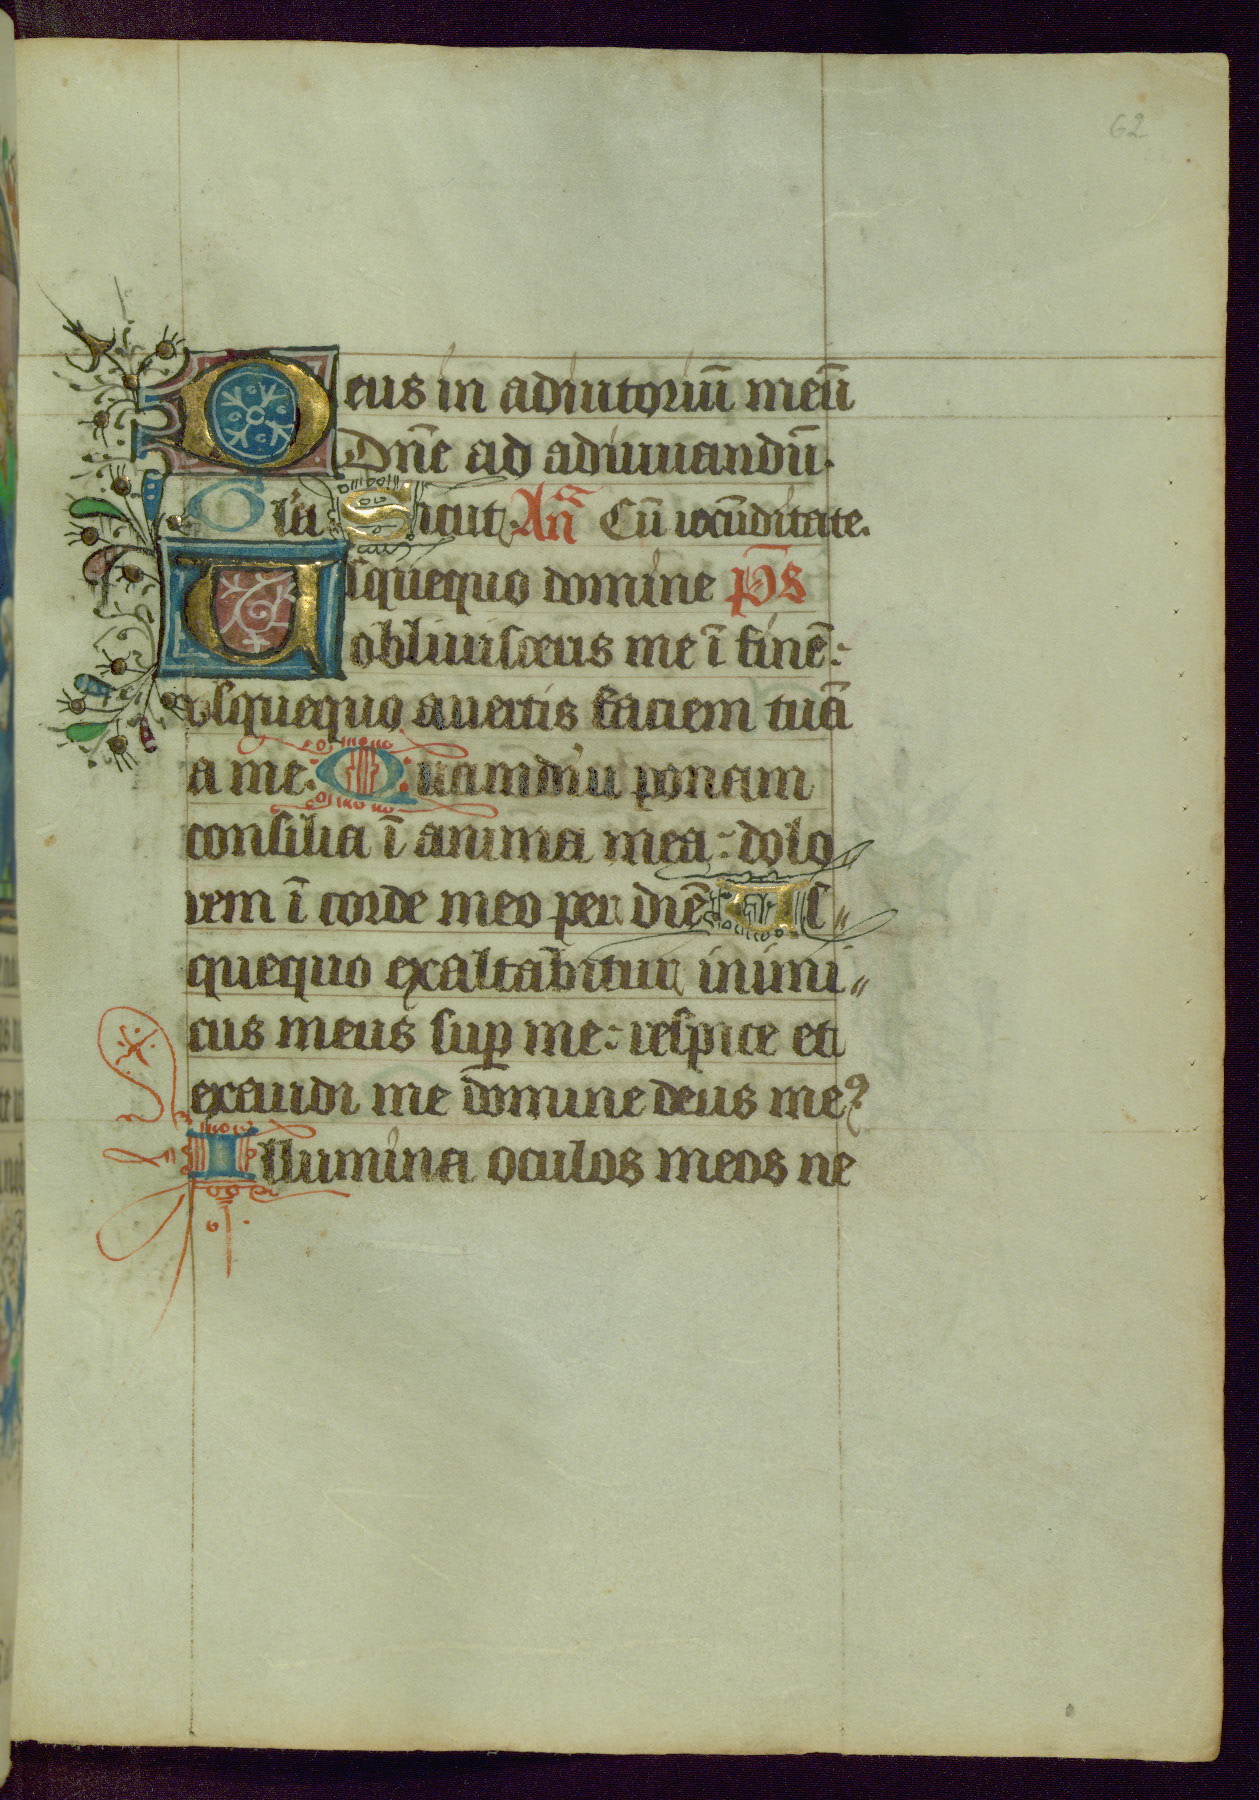 62
Deus in adiutoriū meū
Dn̄e ad adiuuandū.
Gl̄a Sicut. An̄ Cū iocūditate.
Usquequo domine p̄s
obliuisceris me ī finē:
vsquequo auertis faciem tuā
a me. Quamdiu ponam
consilia ī anima mea: dolo
rem ī corde meo per diē Us〃
quequo exaltabitur inimi〃
cus meus suꝑ me: respice et
exaudi me domine deus meꝰ
Illumina oculos meos ne